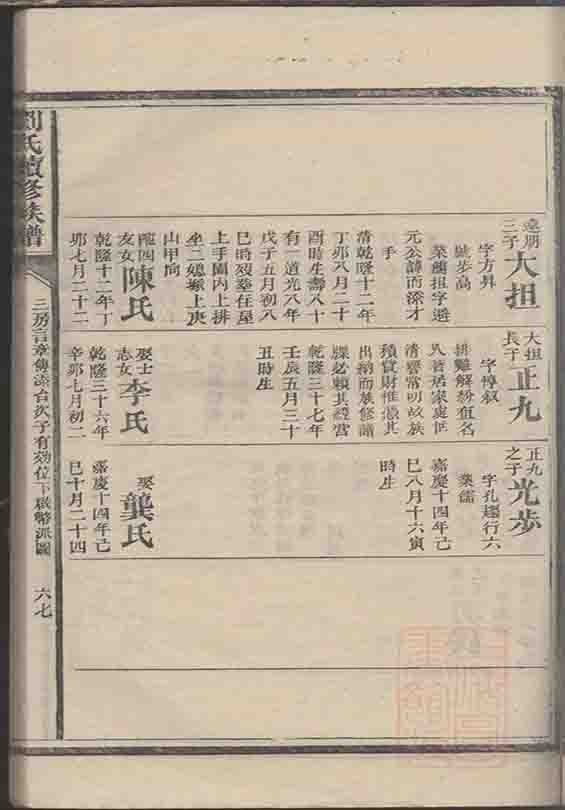 劉氏續修族譜
三房言章傳
次子有効位下
派圖
六七
遠朋
三子
大担
字方昇
號步高
業儒担字避
元公諱而深才
手
清乾隆十二年
丁卯八月二十
酉時生壽八十
有一道光八年
戊子五月初八
巳時歿葬在屋
上手園內上排
坐二媳塚上庚
山甲向
友女
陳氏
乾隆十二年丁
卯七月二十二
大担
長子
正九
字惇叙
排難解紛有名
人皆居家處世
清譽常明故族
積貲財惟憑其
出納而族修譜
牒必賴其經營
乾隆三十七年
壬辰五月三十
丑時生
娶士
志女
李氏
乾隆三十六年
辛卯七月初二
正九
之子
光步
字孔趨行六
業儒
嘉慶十四年己
巳八月十六寅
時生
娶
龔氏
嘉慶十四年己
巳十月二十四